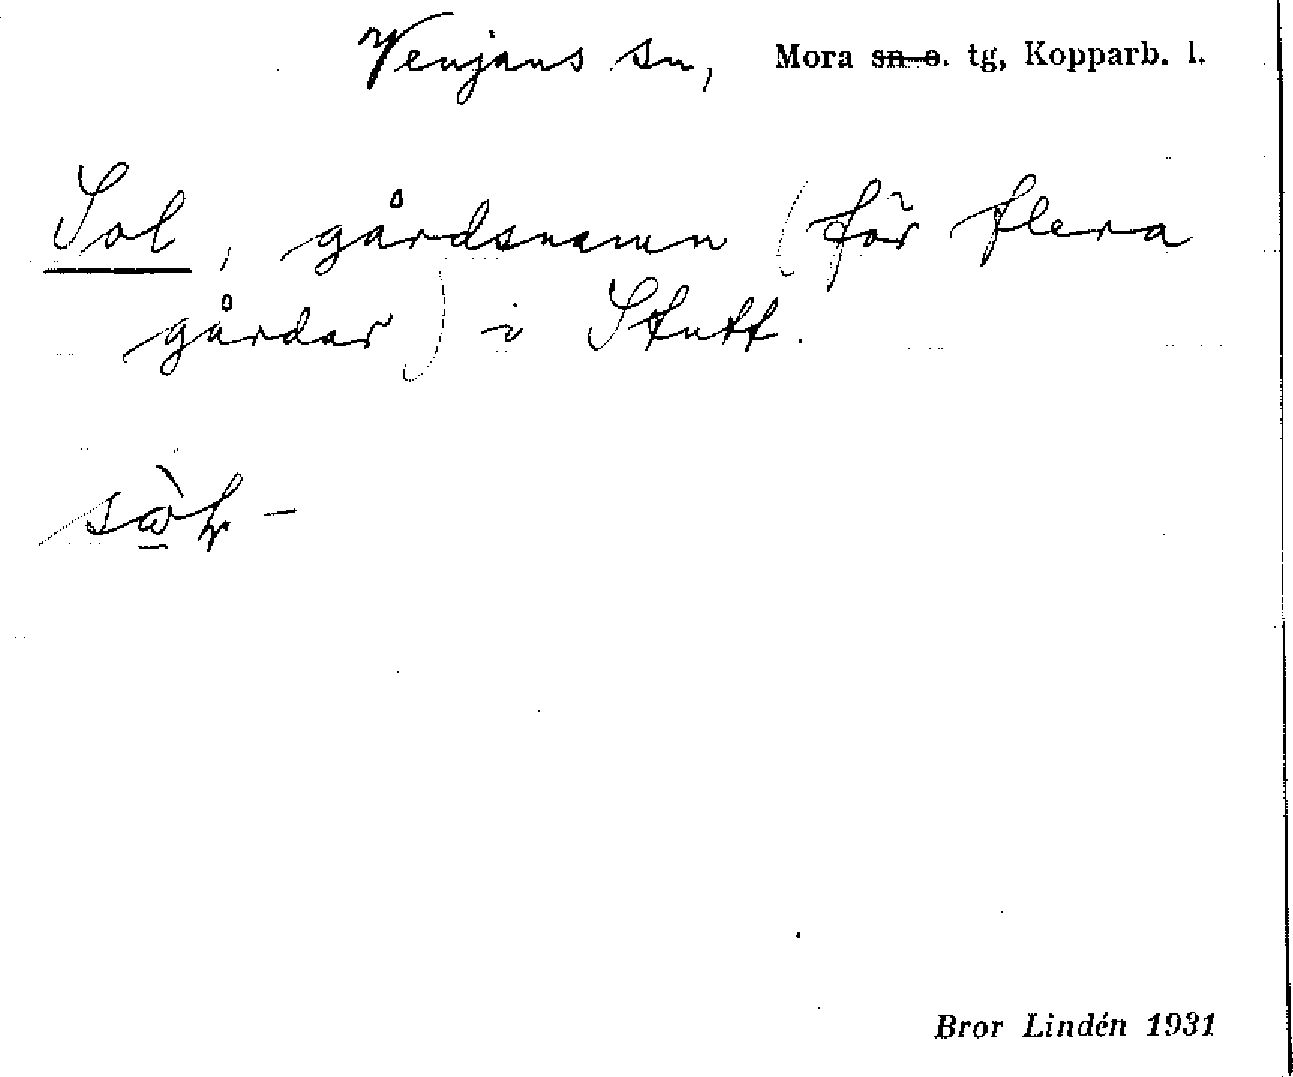 Venjans sn, Mora sn o. tg, Kopparb. l.
Sol, gårdsnamn (för flera
gårdar) i Stutt.
Bror Lindén 1931